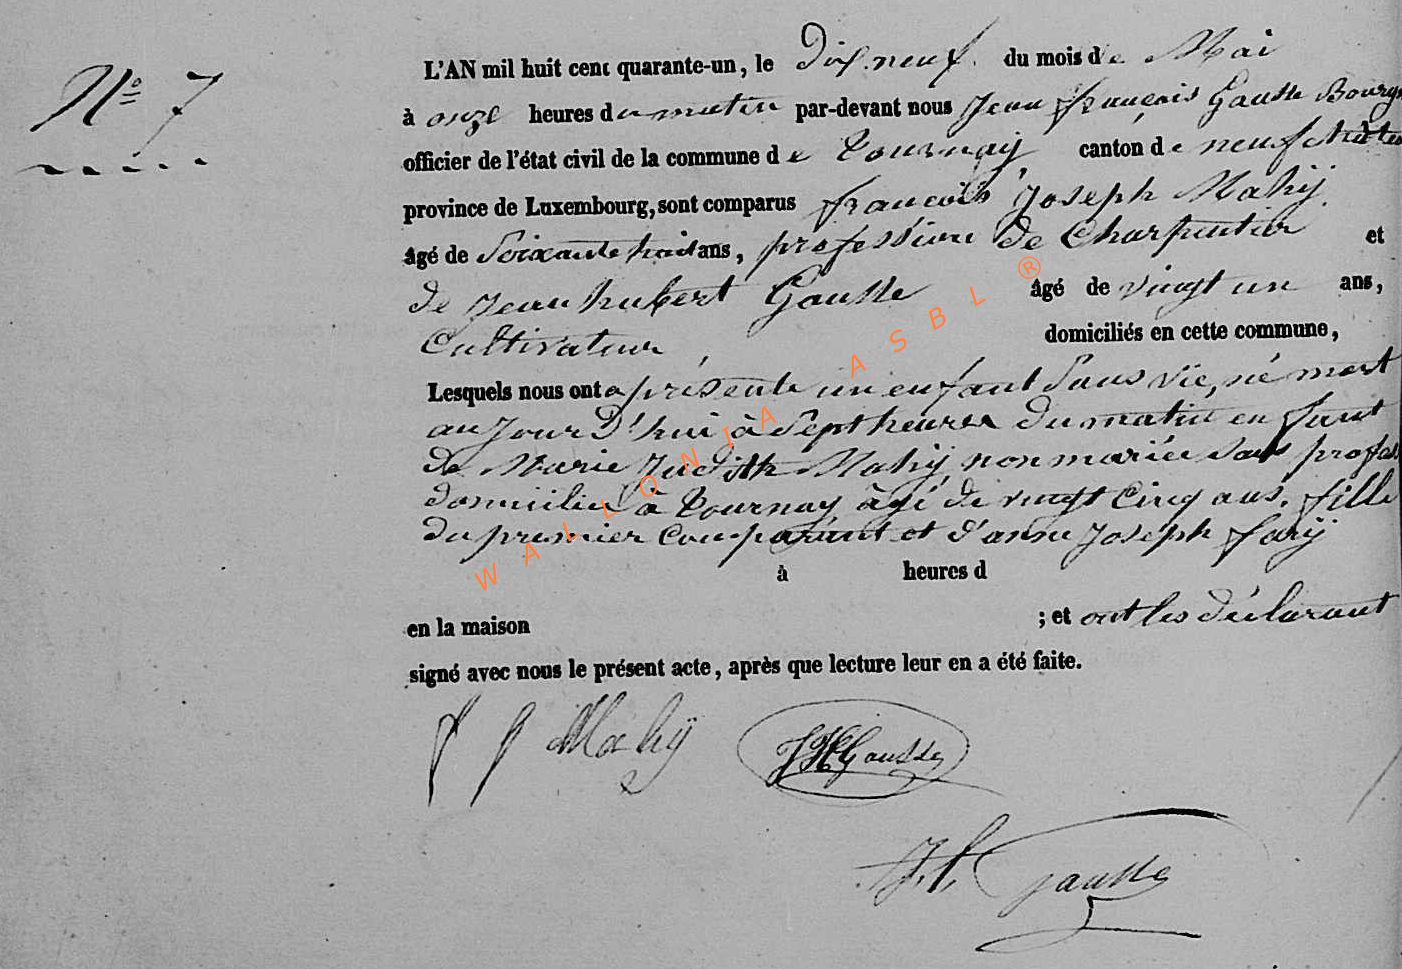 N° 7
L'AN mil huit cent quarante-un, le Dix neuf du mois de Mai
à onze heures du matin par-devant nous Jean françois Gausse Bourgm
officier de l'état civil de la commune de Tournay canton de neufchâteau
province de Luxembourg, sont comparus françois Joseph Mahy
âgé de Soixante huit ans, profession de Charpentier et
de Jean hubert Gausse âgé de vingt un ans,
Cultivateur, domiciliés en cette commune,
Lesquels nous ont présenté un enfant Sans vie, né mort
aujourd'hui à Sept heures du matin enfant
de Marie Judith Mahy non mariée sans profes
domiciliée à Tournay âgé de vingt Cinq ans, fille
du premier Comparant et d'anne Joseph fary
à heures d
en la maison ; et ont les déclarant
signé avec nous le présent acte, après que lecture leur en a été faite.
f J Mahÿ JHGausse
J.f. Gausse
WALLONIA ASBL ®